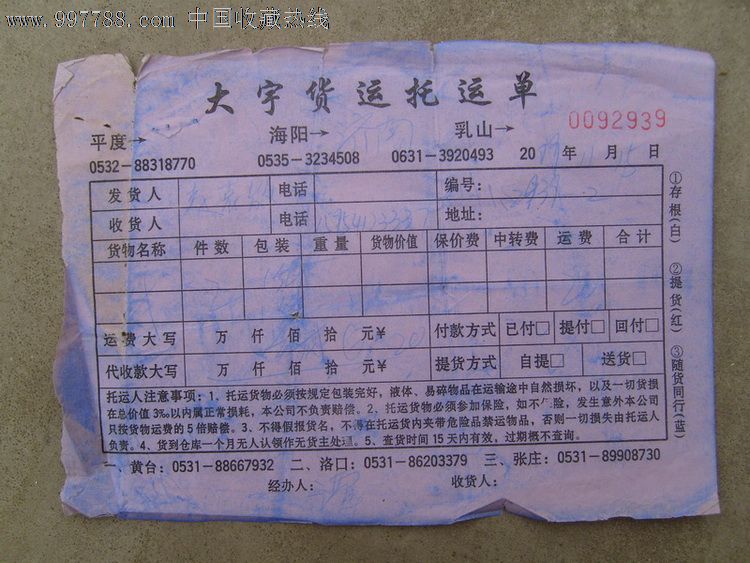 www.997788.com 中国收藏热线
大宇货运托运单
平度→ 海阳→ 济南 乳山→ 0092939
0532-88318770 0535-3234508 0631-3920493 20 年 11月15日
发货人 电话 编号：
收货人 电话 地址：
货物名称 件数 包装 重量 货物价值 保价费 中转费 运费 合计
运费大写 万 仟 佰 拾 元¥ 付款方式 已付□ 提付□ 回付□
代收款大写 万 仟 佰 拾 元¥ 提货方式 自提□ 送货□
托运人注意事项：1、托运货物必须按规定包装完好，液体、易碎物品在运输途中自然损坏，以及一切货损
在总价值3‰以内属正常损耗，本公司不负责赔偿。2、托运货物必须参加保险，如不 险，发生意外本公司
只按货物运费的5倍赔偿。3、不得假报货名，不得在托运货内夹带危险品禁运物品，否则一切损失由托运人
负责。4、货到仓库一个月无人认领作无货主处理。5、查货时间15天内有效，过期概不查询。
一、黄台：0531-88667932 二、洛口：0531-86203379 三、张庄：0531-89908730
经办人： 收货人：
①存根(白)
②提货(红)
③随货同行(蓝)